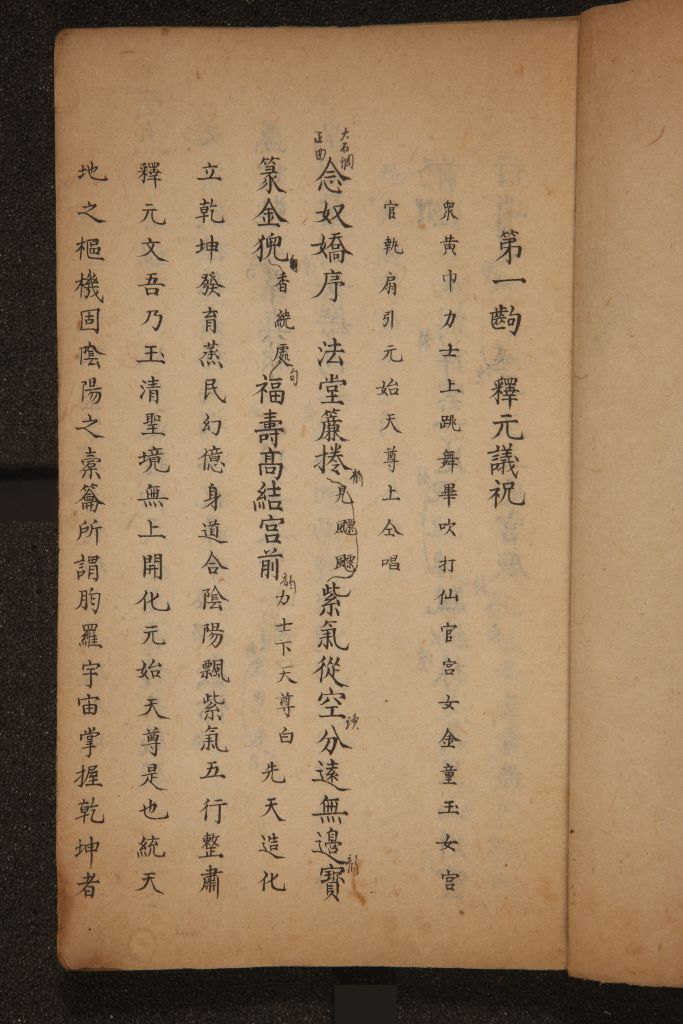 第一齣 釋元議祝
衆黃巾力士上跳舞畢吹打仙官宮女金童玉女宮
官執扇引元始天尊上仝唱
大石調
正曲
念奴嬌序 法堂簾捲韵見飃飃紫氣從空讀分遠無邊寶韵
篆金猊香繞處句福壽高結宮前韵力士下天尊白先天造化
立乾坤發育蒸民幻億身道合陰陽飄紫氣五行整肅
釋元文吾乃玉清聖境無上開化元始天尊是也統天
地之樞機固陰陽之橐籥所謂肑羅宇宙掌握乾坤者